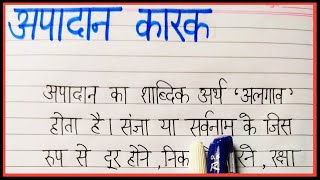 अपादान कारक
अपादान का शाब्दिक अर्थ 'अलगाव'
होता है। संज्ञा या सर्वनाम के जिस
रूप से दूर होने, निक रने, रक्षा